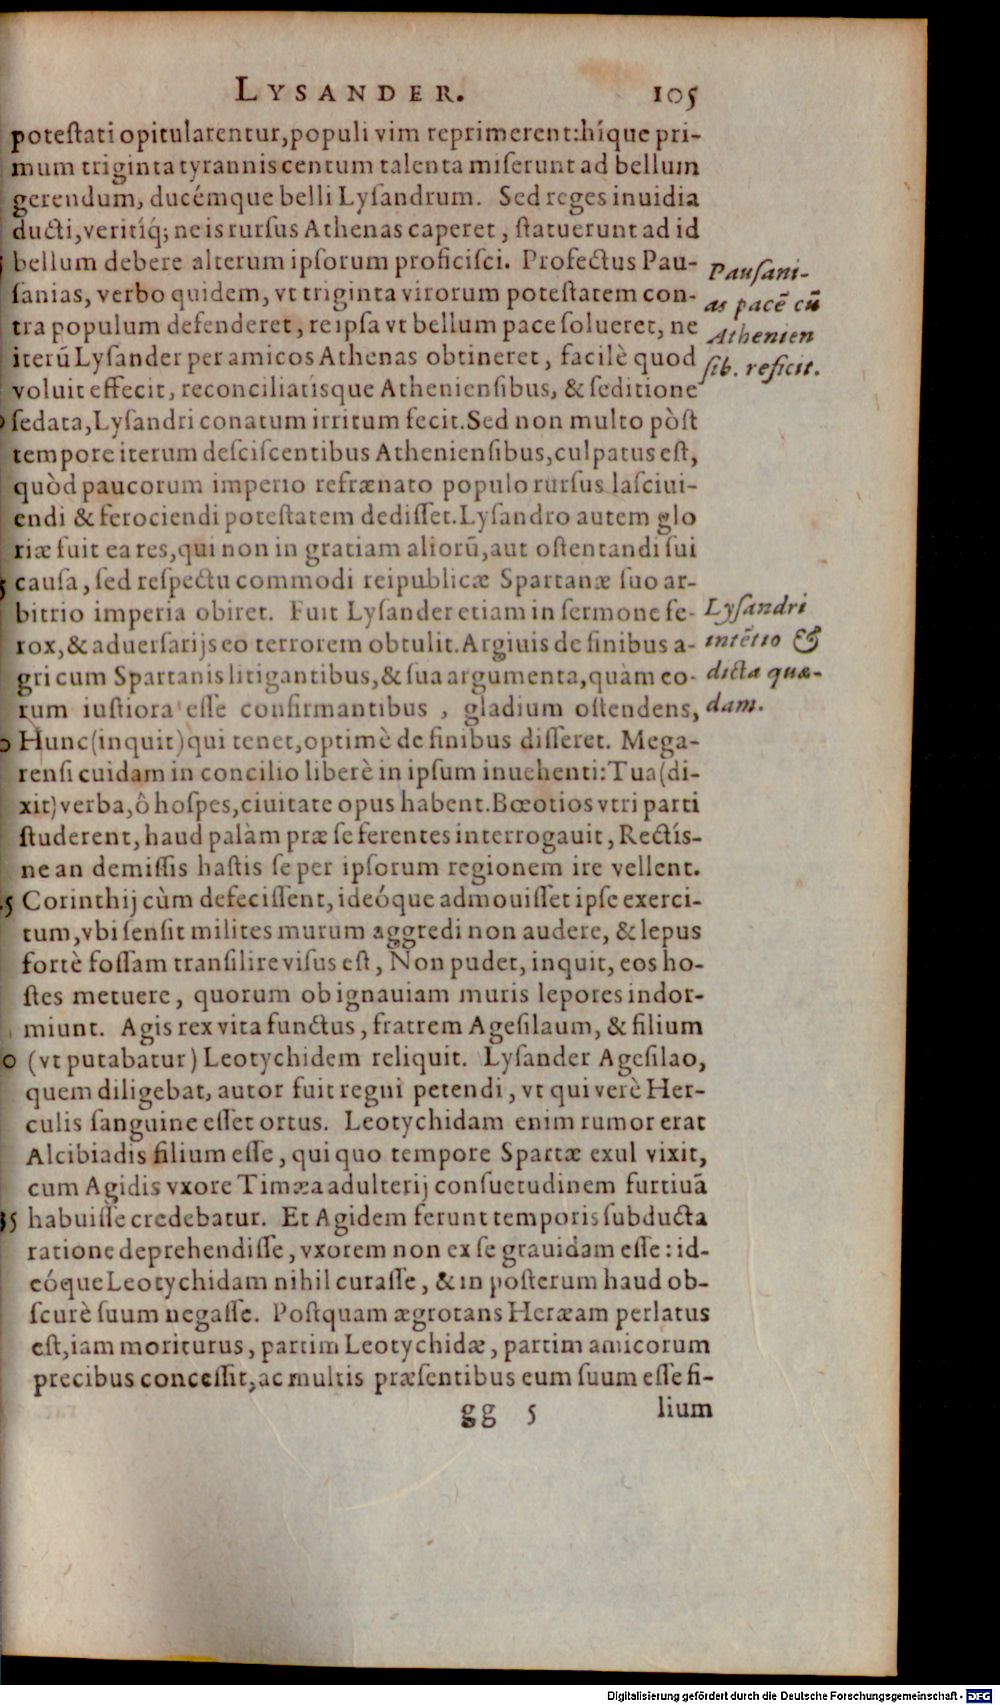 LYSANDER. 105
poteſtati opitularentur, populi vim reprimerent: híque pri-
mum triginta tyrannis centum talenta miſerunt ad bellum
gerendum, ducémque belli Lyſandrum. Sed reges inuidia
ducti, veritíq; ne is rurſus Athenas caperet, ſtatuerunt ad id
bellum debere alterum ipſorum proficiſci. Profectus Pau-
ſanias, verbo quidem, vt triginta virorum poteſtatem con-
tra populum defenderet, reipſa vt bellum pace ſolueret, ne
iterū Lyſander per amicos Athenas obtineret, facilè quod
voluit effecit, reconciliatísque Athenienſibus, & ſeditione
ſedata, Lyſandri conatum irritum fecit. Sed non multo pòſt
tempore iterum deſciſcentibus Athenienſibus, culpatus eſt,
quòd paucorum imperio refrænato populo rurſus laſciui-
endi & ferociendi poteſtatem dediſſet. Lyſandro autem glo
riæ fuit ea res, qui non in gratiam aliorū, aut oſtentandi ſui
5 cauſa, ſed reſpectu commodi reipublicæ Spartanæ ſuo ar-
bitrio imperia obiret. Fuit Lyſander etiam in ſermone fe-
rox, & aduerſarijs eo terrorem obtulit. Argiuis de finibus a-
gri cum Spartanis litigantibus, & ſua argumenta, quàm eo-
rum iuſtiora eſſe confirmantibus, gladium oſtendens,
Hunc (inquit) qui tenet, optimè de finibus diſſeret. Mega-
renſi cuidam in concilio liberè in ipſum inuehenti: Tua (di-
xit) verba, ô hoſpes, ciuitate opus habent. Bœotios vtri parti
ſtuderent, haud palàm præ ſe ferentes interrogauit, Rectíſ-
ne an demiſſis haſtis ſe per ipſorum regionem ire vellent.
5 Corinthij cùm defeciſſent, ideóque admouiſſet ipſe exerci-
tum, vbi ſenſit milites murum aggredi non audere, & lepus
fortè foſſam tranſilire viſus eſt, Non pudet, inquit, eos ho-
ſtes metuere, quorum ob ignauiam muris lepores indor-
miunt. Agis rex vita functus, fratrem Ageſilaum, & filium
0 (vt putabatur) Leotychidem reliquit. Lyſander Ageſilao,
quem diligebat, autor fuit regni petendi, vt qui verè Her-
culis ſanguine eſſet ortus. Leotychidam enim rumor erat
Alcibiadis filium eſſe, qui quo tempore Spartæ exul vixit,
cum Agidis vxore Timæa adulterij conſuetudinem furtiuā
35 habuiſſe credebatur. Et Agidem ferunt temporis ſubducta
ratione deprehendiſſe, vxorem non ex ſe grauidam eſſe: id-
eóque Leotychidam nihil curaſſe, & in poſterum haud ob-
ſcurè ſuum negaſſe. Poſtquam ægrotans Heræam perlatus
eſt, iam moriturus, partim Leotychidæ, partim amicorum
precibus conceſſit, ac multis præſentibus eum ſuum eſſe fi-
gg 5 lium
Pauſani-
as pacē cū
Athenien
ſib. reficit.
Lyſandri
intētio &
dicta quæ-
dam.
Digitalisierung gefördert durch die Deutsche Forschungsgemeinschaft - DFG